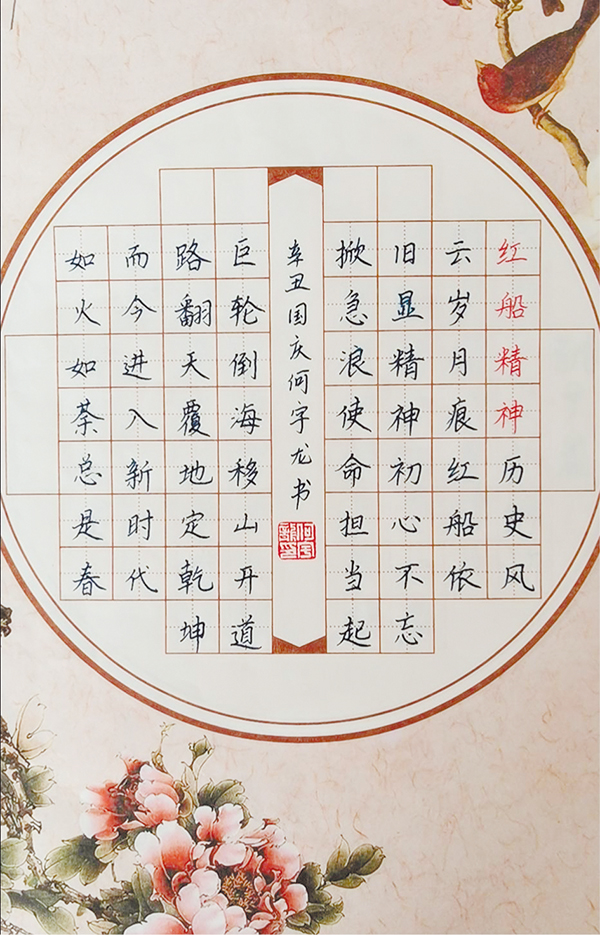 红船精神历史风
云岁月痕红船依
旧显精神初心不忘
掀急浪使命担当起
辛丑国庆何字龙书
巨轮倒海移山开道
路翻天覆地定乾坤
而今进入新时代
如火如荼总是春